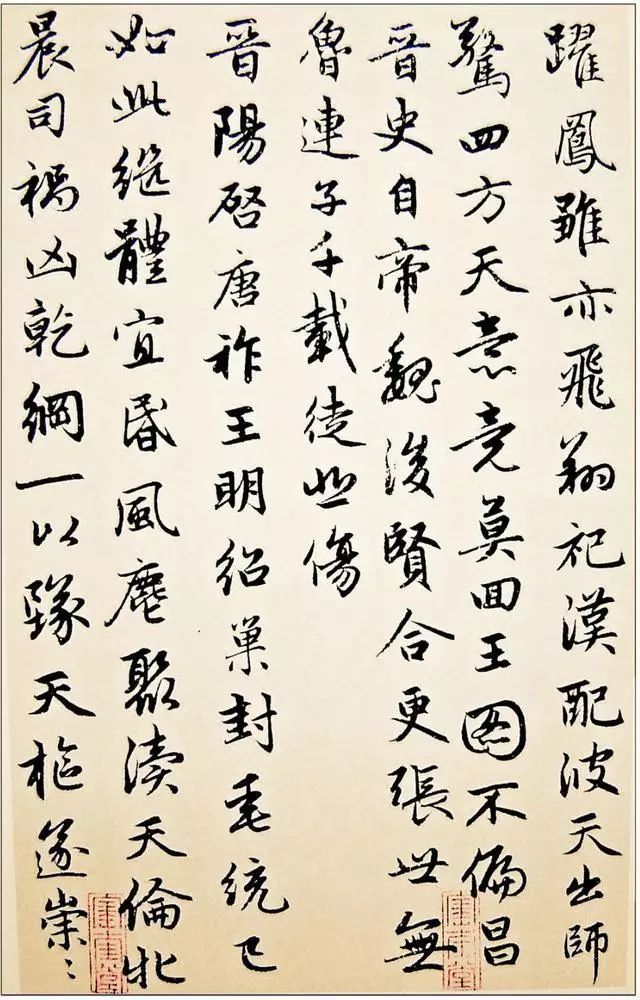 躍鳳雖亦飛翔祀漢配波天出師
驚四方天意竟莫回王圖不偏昌
晉史自帝魏後賢合更張世無
魯連子千載徒悲傷
晉陽啓唐祚王明紹巢封垂統已
如此継體宜昏風麀聚瀆天倫牝
晨司禍凶乾綱一以墜天樞遂崇〻